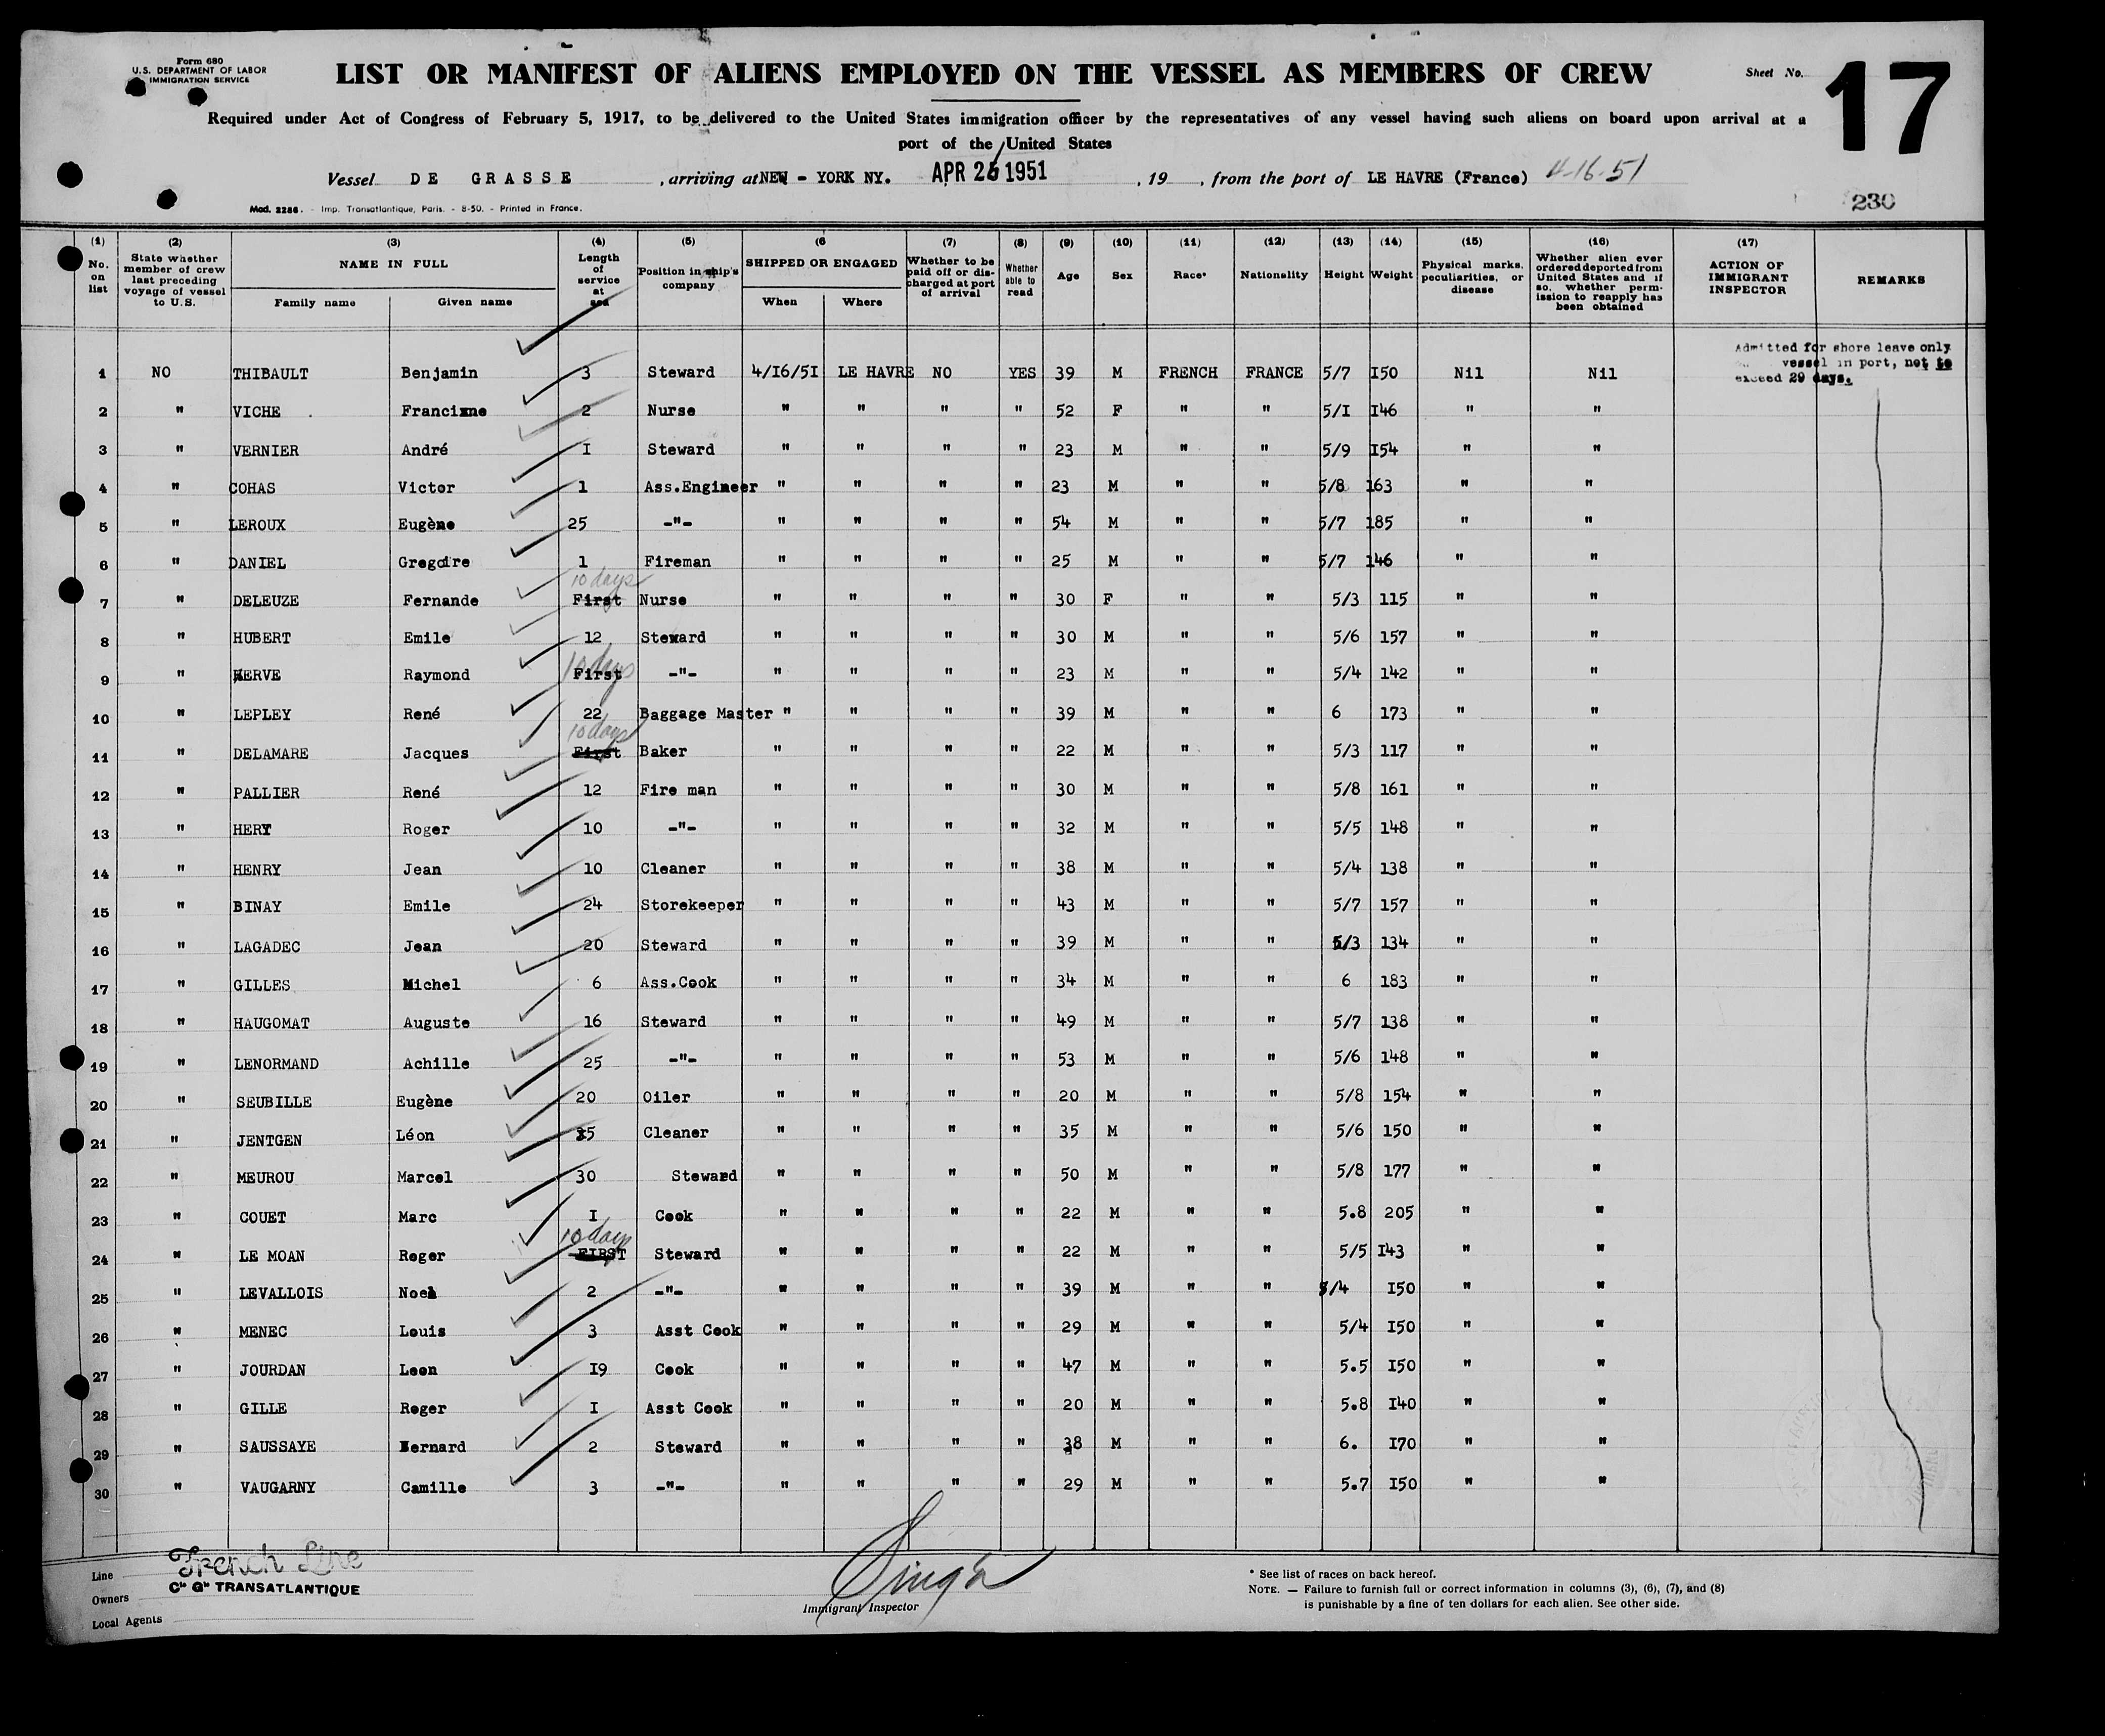 Form 680
U.S. DEPARTMENT OF LABOR
IMMIGRATION SERVICE
LIST OR MANIFEST OF ALIENS EMPLOYED ON THE VESSEL AS MEMBERS OF CREW
Sheet No. 17
Required under Act of Congress of February 5, 1917, to be delivered to the United States immigration officer by the representatives of any vessel having such aliens on board upon arrival at a
port of the United States
Vessel DE GRASSE , arriving at NEW - YORK NY. APR 26 1951 , 19 , from the port of LE HAVRE (France) 4-16-51
Mod. 2286. - Imp. Transatlantique, Paris. - 8-50. - Printed in France.
230
(1) No. on list (2) State whether member of crew last preceding voyage of vessel to U.S. (3) NAME IN FULL Family name Given name (4) Length of service at sea (5) Position in ship's company (6 SHIPPED OR ENGAGED When Where (7) Whether to be paid off or discharged at port of arrival (8) Whether able to read (9) Age (10) Sex (11) Race* (12) Nationality (13) Height (14) Weight (15) Physical marks, peculiarities, or disease (16) Whether alien ever ordered deported from United States and if so, whether permission to reapply has been obtained (17) ACTION OF IMMIGRANT INSPECTOR REMARKS
Admitted for shore leave only
vessel in port, not to
exceed 29 days.
1 NO THIBAULT Benjamin 3 Steward 4/I6/5I LE HAVRE NO YES 39 M FRENCH FRANCE 5/7 I50 Nil Nil
2 " VICHE . Francinne 2 Nurse " " " " 52 F " " 5/I I46 " "
3 " VERNIER André I Steward " " " " 23 M " " 5/9 I54 " "
4 " COHAS Victor 1 Ass.Engineer " " " " 23 M " " 5/8 163 " "
5 " LEROUX Eugène 25 -"- " " " " 54 M " " 5/7 185 " "
6 " DANIEL Gregoire 1 Fireman " " " " 25 M " " 5/7 146 " "
7 " DELEUZE Fernande First 10 days Nurse " " " " 30 F " " 5/3 115 " "
8 " HUBERT Emile 12 Steward " " " " 30 M " " 5/6 157 " "
9 " HERVE Raymond First 10 days -"- " " " " 23 M " " 5/4 142 " "
10 " LEPLEY René 22 Baggage Master " " " " 39 M " " 6 173 " "
11 " DELAMARE Jacques First 10 days Baker " " " " 22 M " " 5/3 117 " "
12 " PALLIER René 12 Fire man " " " " 30 M " " 5/8 161 " "
13 " HERY Roger 10 -"- " " " " 32 M " " 5/5 148 " "
14 " HENRY Jean 10 Cleaner " " " " 38 M " " 5/4 138 " "
15 " BINAY Emile 24 Storekeeper " " " " 43 M " " 5/7 157 " "
16 " LAGADEC Jean 20 Steward " " " " 39 M " " 5/3 134 " "
17 " GILLES Michel 6 Ass.Cook " " " " 34 M " " 6 183 " "
18 " HAUGOMAT Auguste 16 Steward " " " " 49 M " " 5/7 138 " "
19 " LENORMAND Achille 25 -"- " " " " 53 M " " 5/6 148 " "
20 " SEUBILLE Eugène 20 Oiler " " " " 20 M " " 5/8 154 " "
21 " JENTGEN Léon 15 Cleaner " " " " 35 M " " 5/6 150 " "
22 " MEUROU Marcel 30 Steward " " " " 50 M " " 5/8 177 " "
23 " COUET Marc I Cook " " " " 22 M " " 5.8 205 " "
24 " LE MOAN Roger FIRST 10 days Steward " " " " 22 M " " 5/5 I43 " "
25 " LEVALLOIS Noel 2 -"- " " " " 39 M " " 5/4 I50 " "
26 " MENEC Louis 3 Asst Cook " " " " 29 M " " 5/4 I50 " "
27 " JOURDAN Leon I9 Cook " " " " 47 M " " 5.5 I50 " "
28 " GILLE Roger I Asst Cook " " " " 20 M " " 5.8 I40 " "
29 " SAUSSAYE Bernard 2 Steward " " " " 38 M " " 6. I70 " "
30 " VAUGARNY Camille 3 -"- " " " " 29 M " " 5.7 I50 " "
Line French Line
Owners Cie Gle TRANSATLANTIQUE
Local Agents
Immigrant Inspector
* See list of races on back hereof.
NOTE. — Failure to furnish full or correct information in columns (3), (6), (7), and (8)
is punishable by a fine of ten dollars for each alien. See other side.